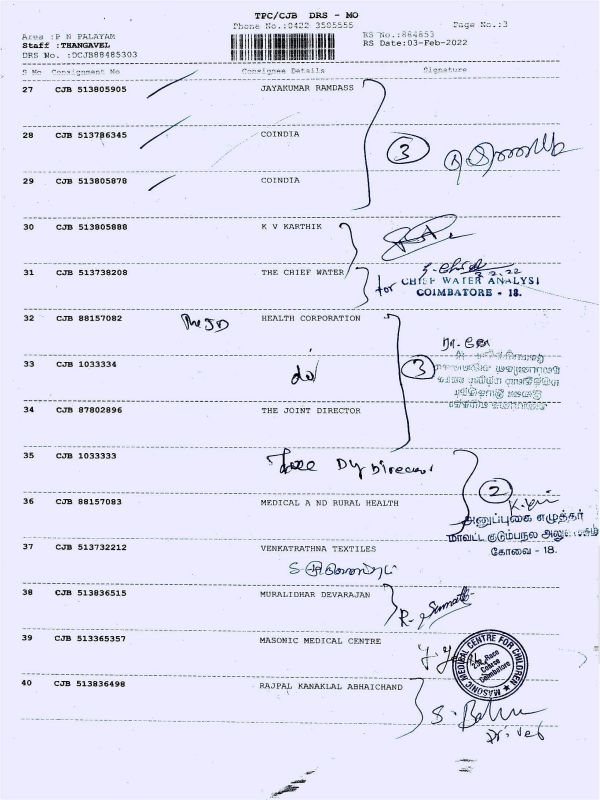 TPC/CJB DRS - MO
Phone No.:0422 3505555
Page No.:3
Area :P N PALAYAM
RS No.:884853
Staff :THANGAVEL
RS Date:03-Feb-2022
DRS No. :DCJB88485303
S No Consignment No Consignee Details Signature
27 CJB 513805905 JAYAKUMAR RAMDASS
28 CJB 513786345 COINDIA
3
29 CJB 513805878 COINDIA
30 CJB 513805888 K V KARTHIK
31 CJB 513738208 THE CHIEF WATER
3.2.22
for CHIEF WATER ANALYST
COIMBATORE - 18.
32 CJB 88157082 The JD HEALTH CORPORATION
33 CJB 1033334 do
3
34 CJB 87802896 THE JOINT DIRECTOR
35 CJB 1033333 Dy Director
2
36 CJB 88157083 MEDICAL A ND RURAL HEALTH
அனுப்புகை எழுத்தர்
மாவட்ட குடும்பநல
கோவை - 18.
37 CJB 513732212 VENKATRATHNA TEXTILES
38 CJB 513836515 MURALIDHAR DEVARAJAN
39 CJB 513365357 MASONIC MEDICAL CENTRE
MASONIC MEDICAL CENTRE FOR CHILDREN
Race
Course
Coimbatore
40 CJB 513836498 RAJPAL KANAKLAL ABHAICHAND